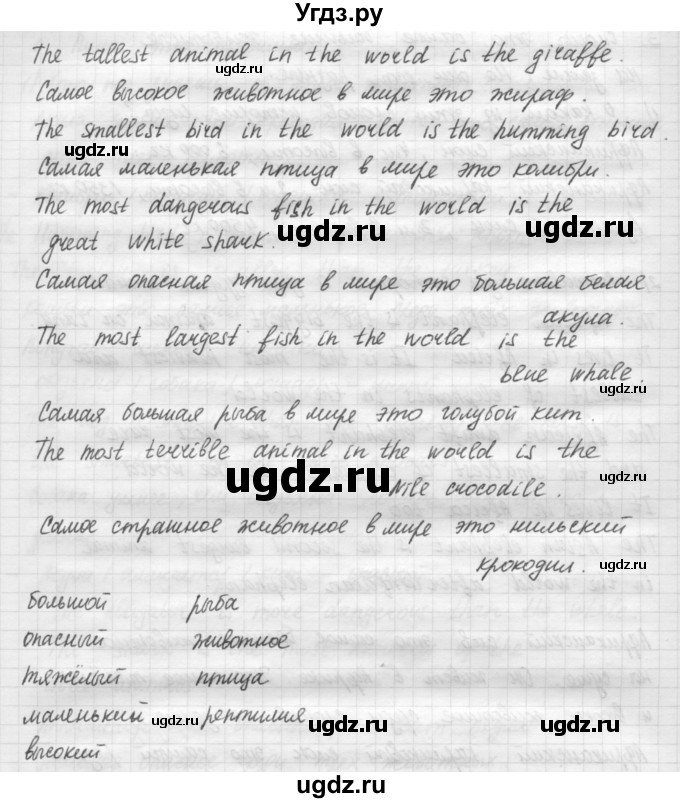 Угдз.ру
The tallest animal in the world is the giraffe.
ugdz.ru
Самое высокое животное в мире это жираф.
ugdz.ru
The smallest bird in the world is the humming bird.
ugdz.ru
Самая маленькая птица в мире это колибри.
The most dangerous fish in the world is the
ugdz.ru ugdz.ru
great white shark.
Самая опасная птица в мире это большая белая
ugdz.ru
акула.
The most largest fish in the world is the
blue whale.
ugdz.ru
Самая большая рыба в мире это голубой кит.
The most terrible animal in the world is the
ugdz.ru
Nile crocodile.
Самое страшное животное в мире это нильский
крокодил.
ugdz.ru
большой рыба
опасный животное
тяжёлый птица
маленький рептилия
ugdz.ru ugdz.ru ugdz.ru
высокий
ugdz.ru